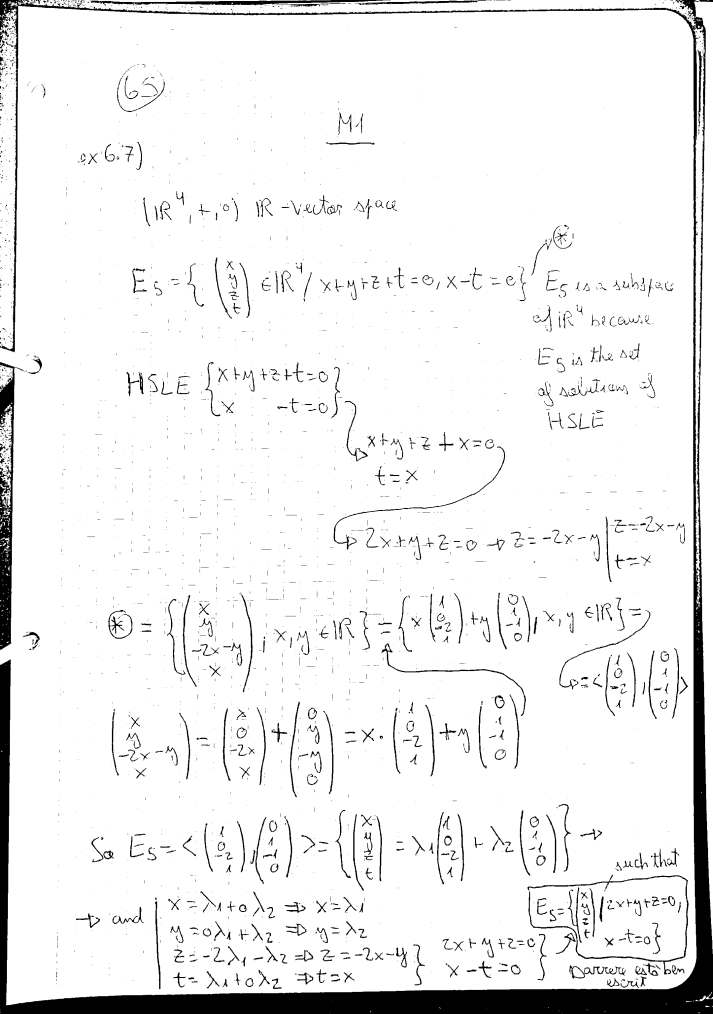 65
M1
ex 6.7)
(ℝ⁴, +, ∘) ℝ-vector space
E₅ = { (x y z t) ∈ ℝ⁴ / x+y+z+t=0, x-t=0 } ⊛
E₅ is a subspace
of ℝ⁴ because
E₅ is the set
of solutions of
HSLE
HSLE { x+y+z+t=0
x -t=0 }
x+y+z+x=0
t=x
2x+y+z=0 → z=-2x-y | z=-2x-y
t=x
⊛ = { (x y -2x-y x) ; x,y ∈ ℝ } = { x (1 0 -2 1) + y (0 1 -1 0), x,y ∈ ℝ } =
= < (1 0 -2 1), (0 1 -1 0) >
(x y -2x-y x) = (x 0 -2x x) + (0 y -y 0) = x · (1 0 -2 1) + y (0 1 -1 0)
So E₅ = < (1 0 -2 1), (0 1 -1 0) > = { (x y z t) = λ₁ (1 0 -2 1) + λ₂ (0 1 -1 0) } →
→ and | x = λ₁+0λ₂ ⇒ x=λ₁
y = 0λ₁+λ₂ ⇒ y=λ₂
z = -2λ₁-λ₂ ⇒ z=-2x-y
t = λ₁+0λ₂ ⇒ t=x
} 2x+y+z=0
x-t=0 }
such that
E₅ = { (x y z t) / 2x+y+z=0,
x-t=0 }
Darrere està ben
escrit